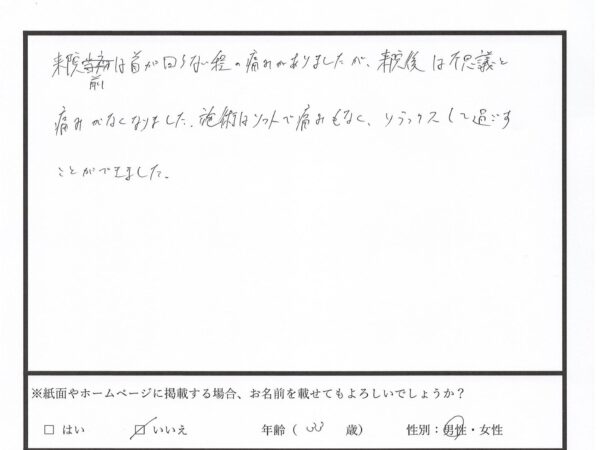 来院前は首が回らない程の痛みがありましたが、来院後は不思議と
痛みがなくなりました。施術はソフトで痛みもなく、リラックスして過ごす
ことができました。
※紙面やホームページに掲載する場合、お名前を載せてもよろしいでしょうか？
□ はい ☑ いいえ 年齢（ 33 歳） 性別：男性・女性